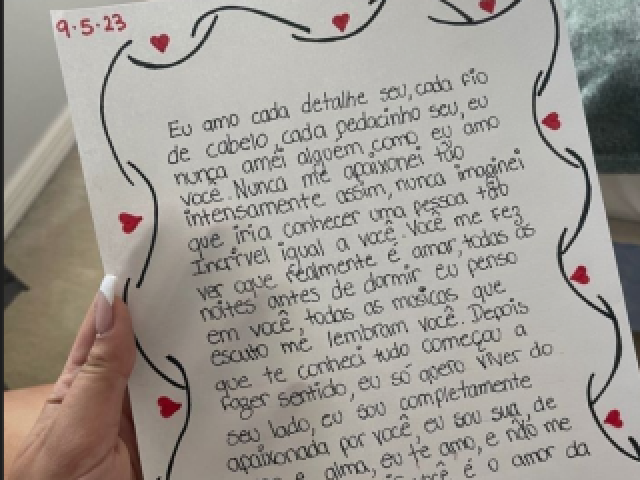 9.5.23
Eu amo cada detalhe seu, cada fio
de cabelo, cada pedacinho seu, eu
nunca amei alguém como eu amo
você. Nunca me apaixonei tão
intensamente assim, nunca imaginei
que iria conhecer uma pessoa tão
Incrível igual a você. Você me fez
ver oque realmente é amar, todas as
noites antes de dormir eu penso
em você, todas as musicas que
escuto me lembram você. Depois
que te conheci tudo começou a
fazer sentido, eu só quero viver do
seu lado, eu sou completamente
apaixonada por você, eu sou sua, de
e alma, eu te amo, e não me
é o amor da